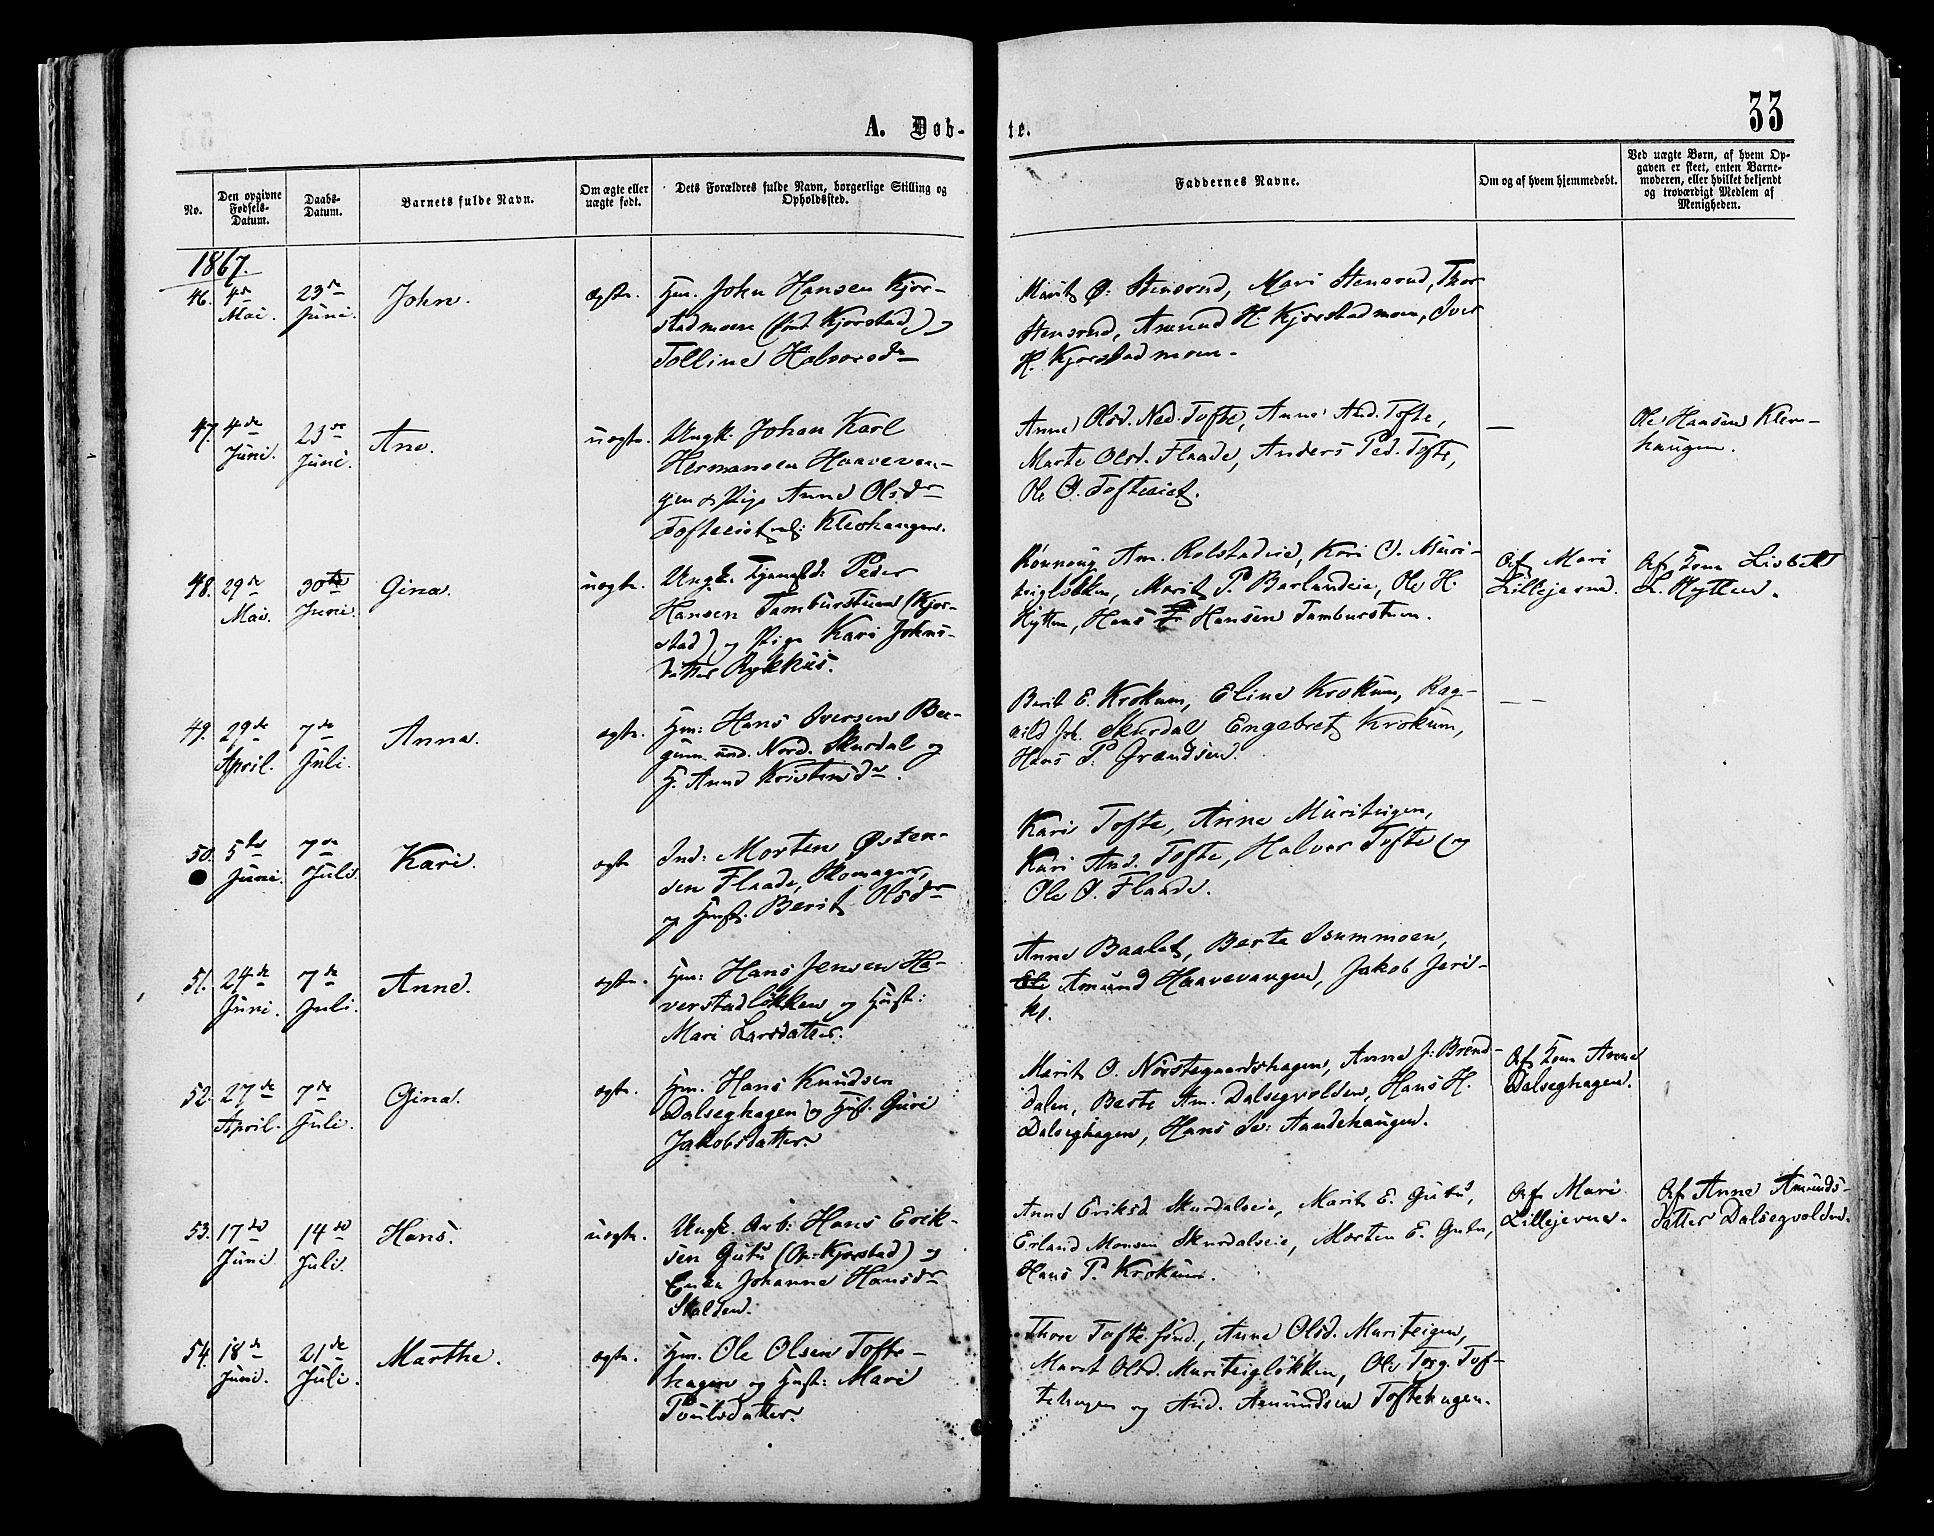 A. Døb-
te.
33
No.
Den opgivne
Fødsels-
Datum.
Daabs-
Datum.
Barnets fulde Navn.
Om ægte eller
uægte født.
Dets Forældres fulde Navn, borgerlige Stilling og
Opholdssted.
Faddernes Navne.
Om og af hvem hjemmedøbt.
Ved uægte Børn, af hvem Op-
gaven er skeet, enten Barne-
moderen, eller hvilket bekjendt
og troværdigt Medlem af
Menigheden.
1867.
46.
4de
Mai.
23de
Juni.
John.
ægte.
Hm. John Hansen Kjor-
stadmoen (født Kjorstad) og
Tolline Halvorsdr
Marit Ø. Stensrud, Mari Stensrud, Thor
Stensrud, Amund H. Kjorstadmoen, Iver
H. Kjorstadmoen.
47.
4de
Juni.
23de
Juni.
Ane.
uægte.
Ungk. Johan Karl
Hermansen Haaveven-
gen & Pige Anne Olsdr
Tofteeiet Kleohaugen.
Anne Olsd. Ned. Tofte, Anne And. Tofte,
Marte Olsd. Flaade, Anders Ped. Tofte,
Ole O. Tofteeiet.
—
Ole Hansen Kleo-
haugen.
48.
29de
Mai.
30te
Juni.
Gina.
uægte.
Ungk. Peder
Hansen Tamburstuen (Kjor-
stad) og Pige Kari Johns-
datter Rykkus.
Rønnoug Am. Rolstadeie, Kari O. Muri-
teigløkken, Marit P. Borlandeie, Ole H.
Hytten, Hans Hansen Tamburstuen.
Af Mari
Lillejevne.
Af Kone Lisbett
L. Hytten.
49.
29de
April.
7de
Juli.
Anna.
ægte.
Hm: Hans Iversen Bee-
gum und. Nord. Skurdal og
H. Anne Kristensdr.
Berit E. Krokum, Eline Krokum, Rag-
nild Joh. Skurdal Engebret Krokum,
Hans P. Grandsen.
— —
50.
5te
Juni.
7de
Juli.
Kari.
ægte
Ind: Morten Østen-
sen Flaade, Skomager,
og Hust. Berit Olsdr
Kari Tofte, Anne Muriteigen,
Kari And. Tofte, Halvor Tofte og
Ole O. Flaade.
51.
24de
Juni.
7de
Juli.
Anne.
ægte.
Hm: Hans Jensen Ha-
verstadløkken og Hust:
Mari Larsdatter.
Anne Baalet, Berte Isummoen,
Amund Haavevangen, Jakob Jeri-
52.
27de
April.
7de
Juli.
Gina.
ægte.
Hm. Hans Knudsen
Dalseghagen og Hust. Guri
Jakobsdatter
Marit O. Nørstegaardshagen, Anne J. Brend-
dalen, Berte Am. Dalsegvolden, Hans H.
Dalseghagen, Hans Iv: Aandehaugen.
Af Kone Anne
Dalseghagen.
53.
17de
Juni
14de
Juli.
Hans.
uægte.
Ungk. Arb: Hans Erik-
sen Gutu (Op. Kjorstad) og
Enke Johanne Hansdr
Skalden.
Anne Eriksd Skurdalseie, Marit E. Gutu,
Erland Monsen Skurdalseie, Morten E. Gutu,
Hans P. Krokum.
Af Mari
Lillejevne.
Af Anne Amunds-
datter Dalsegvolden.
54.
18de
Juni.
21de
Juli.
Marthe.
ægte.
Hm. Ole Olsen Tofte-
hagen og Hust: Mari
Poulsdatter.
Thore Tofte sønd., Anne Olsd. Muriteigen,
Marit Olsd. Muriteigløkken, Ole Torg. Tof-
tehagen og And. Amundsen Toftehagen.